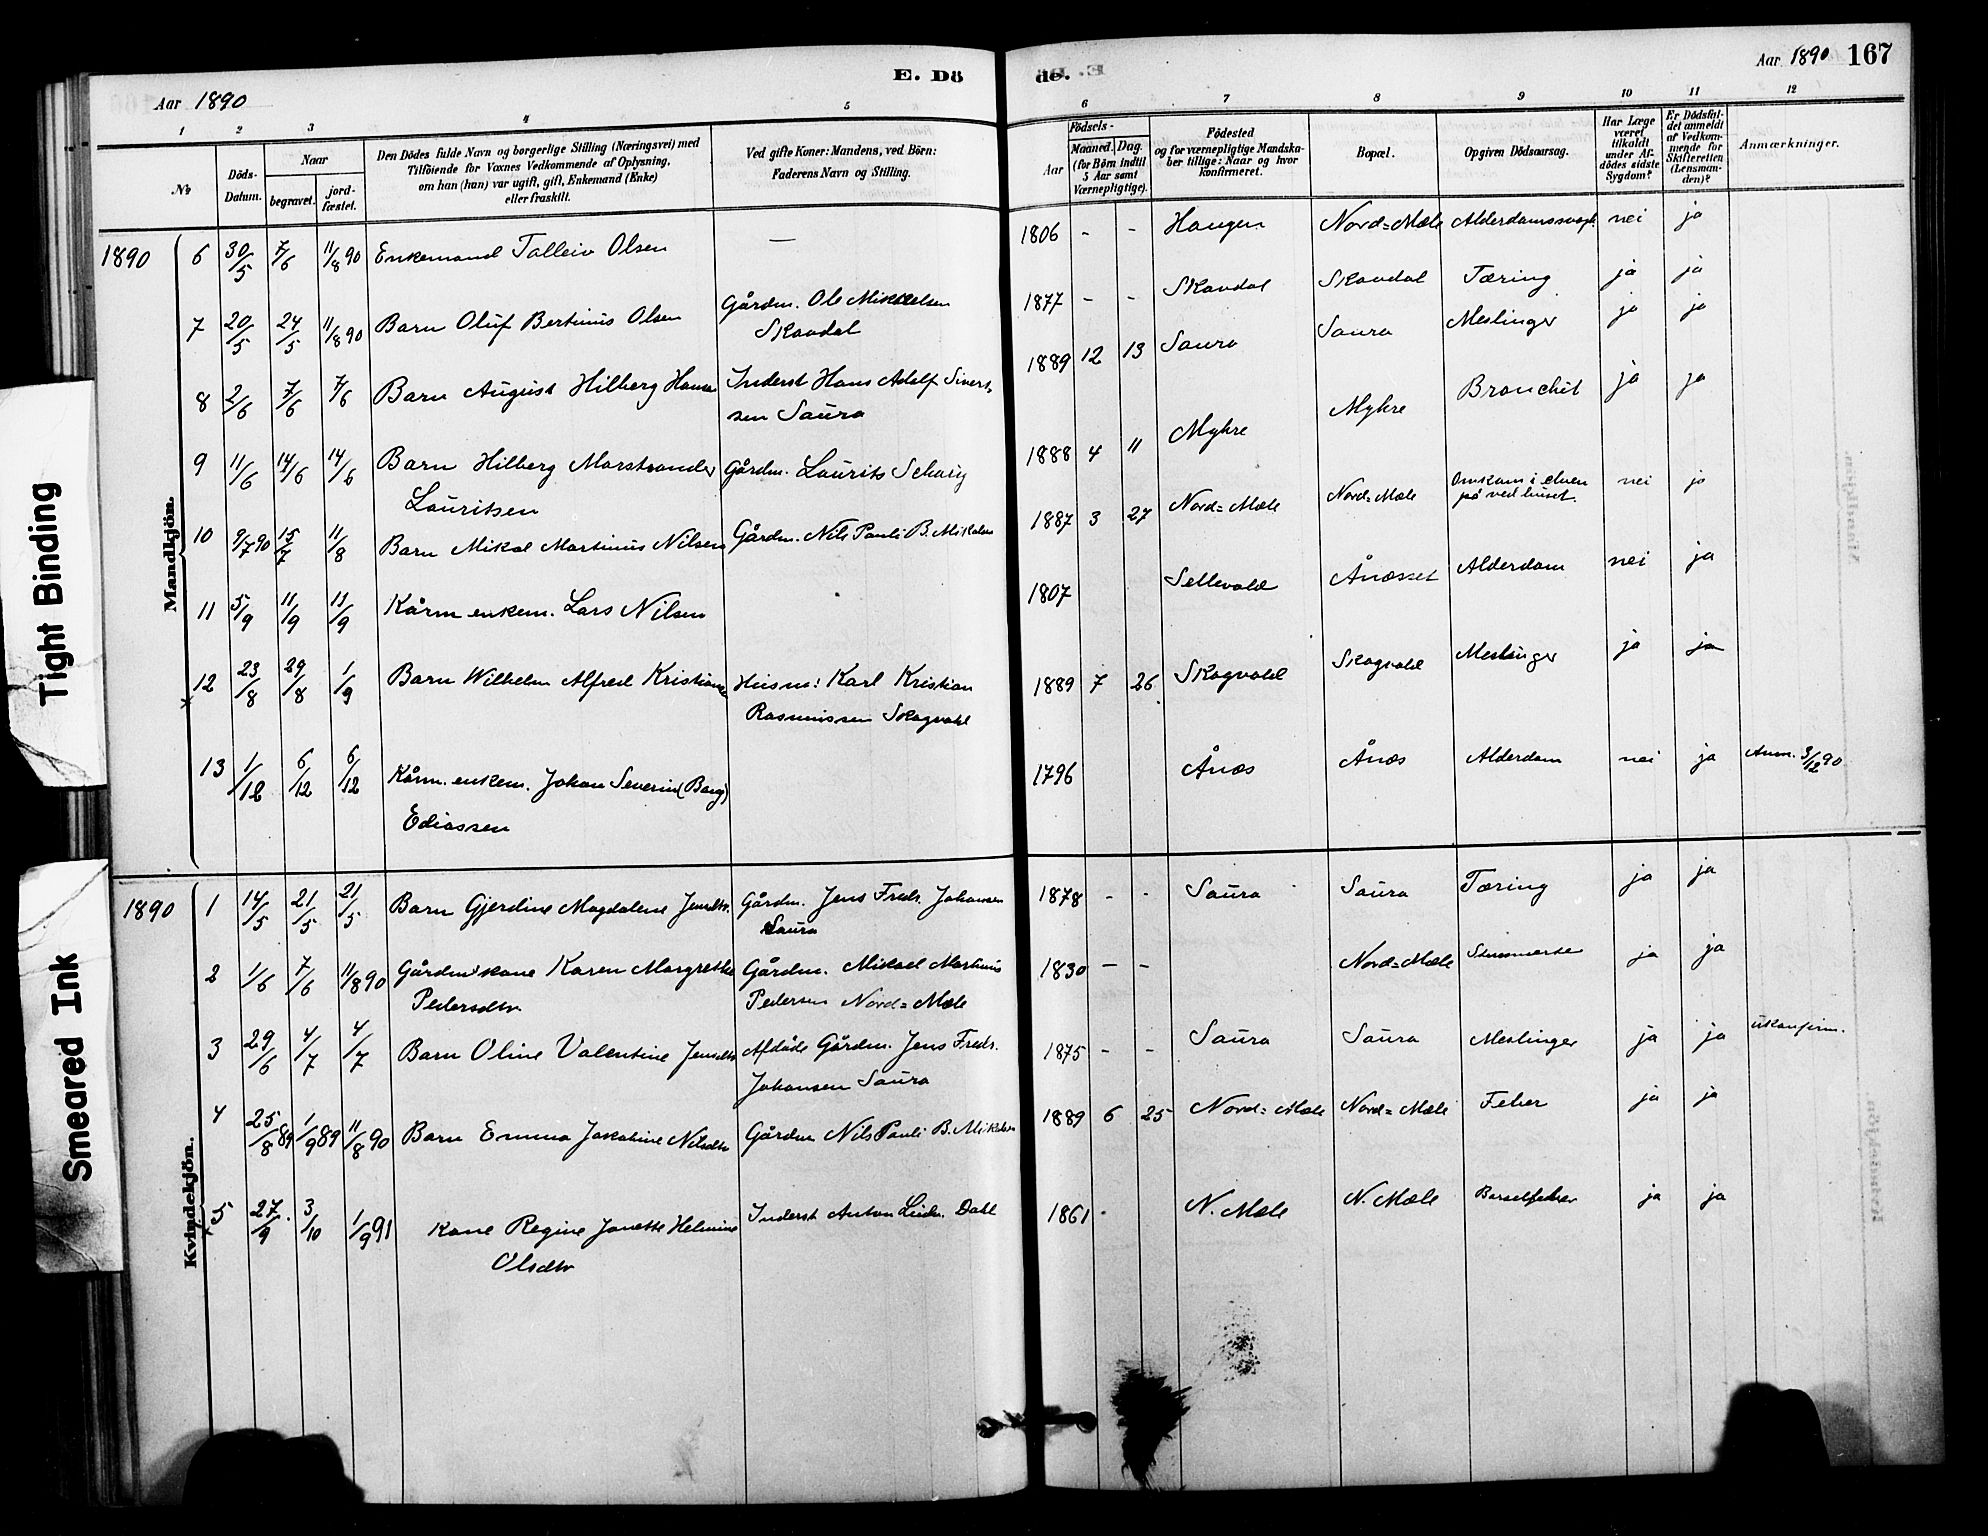 Tight Binding
Smeared Ink
E. Dö
Aar 1890
1 2 3 4 5
№
Döds-Datum.
Naar
begravet.
jord-fæstet.
Den Dödes fulde Navn og borgerlige Stilling (Næringsvei) med
Tilföiende for Voxnes Vedkommende af Oplysning,
om han (hun) var ugift, gift, Enkemand (Enke)
eller fraskilt.
Ved gifte Koner: Mandens, ved Börn:
Faderens Navn og Stilling.
Mandkjön.
1890 6 30/5 7/6 11/8 90 Enkemand Tolleiv Olsen —
7 20/5 24/5 11/8 90 Barn Oluf Bertinus Olsen Gårdm. Ole Mikkelsen
Skavdal
8 2/6 7/6 7/6 Barn August Hilberg Hansen Inderst Hans Adolf Sivert
sen Saura
9 11/6 14/6 14/6 Barn Hilberg Marstrander Gårdm. Laurits Schøig
Lauritsen
10 9/7 90 15/7 11/8 Barn Mikal Martinus Nilsen Gårdm. Nils Pauli B. Mikalsen
11 5/9 11/9 11/9 Kårm. enkem. Lars Nilsen
12 23/8 29/8 1/9 Barn Wilhelm Alfred Kristiansen Husm: Karl Kristian
Rasmussen Skogvold
13 1/12 6/12 6/12 Kårm. enkem. Johan Severin (Bang)
Ediassen
Kvindekjön.
1890 1 14/5 21/5 21/5 Barn Gjerdine Magdalene Jensdtr. Gårdm. Jens Fredr. Johansen
Saura
2 1/6 7/6 11/8 90 Gårdm's kone Karen Margrethe Gårdm. Mikael Martinus
Pedersdtr. Pedersen Nord=Mæle
3 29/6 4/7 4/7 Barn Oline Valentine Jensdtr Afdøde Gårdm. Jens Fredr.
Johansen Saura
4 25/8 89 1/9 89 11/8 90 Barn Emma Jakobine Nilsdtr Gårdm Nils Pauli B. Mikalsen
5 27/9 3/10 1/9 91 Kone Regine Janette Helmine Inderst Anton Ludv. Dahl
Olsdtr
de.
Aar 1890 167
6 7 8 9 10 11 12
Födsels-
Aar
Maaned. Dag.
(for Börn indtil
5 Aar samt
Værnepligtige).
Födested
og for værnepligtige Mandska-
ber tillige: Naar og hvor
konfirmeret.
Bopæl.
Opgiven Dödsaarsag.
Har Læge
været
tilkaldt
under Af-
dödes sidste
Sygdom?
Er Dödsfal-
det anmeldt
af Vedkom-
mende for
Skifteretten
(Lensman-
den)?
Anmærkninger.
1806 - - Haugen Nord=Mæle Alderdomssvagh. nei ja
1877 - - Skavdal Skavdal Tæring ja ja
1889 12 13 Saura Saura Meslinger ja ja
1888 4 11 Myhre Myhre Bronchit ja ja
1887 3 27 Nord=Mæle Nord=Mæle Omkom i elven
på ved huset. nei ja
1807 Sellevold Ånæsset Alderdom nei ja
1889 7 26 Skogvold Skogvold Meslinger ja ja
1796 Ånæs Ånæs Alderdom nei ja Anm. 3/12 90
1878 - - Saura Saura Tæring ja ja
1830 - - Nord=Mæle ja ja
1875 - - Saura Saura Meslinger ja ja ukonfirm.
1889 6 25 Nord=Mæle Nord=Mæle Feber ja ja
1861 N. Mæle N. Mæle Barselfeber ja ja